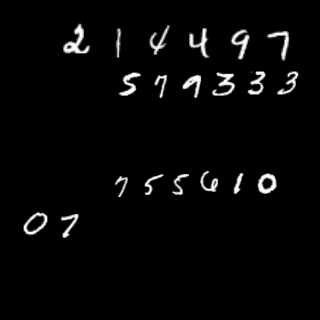 214497
579333
755610
07